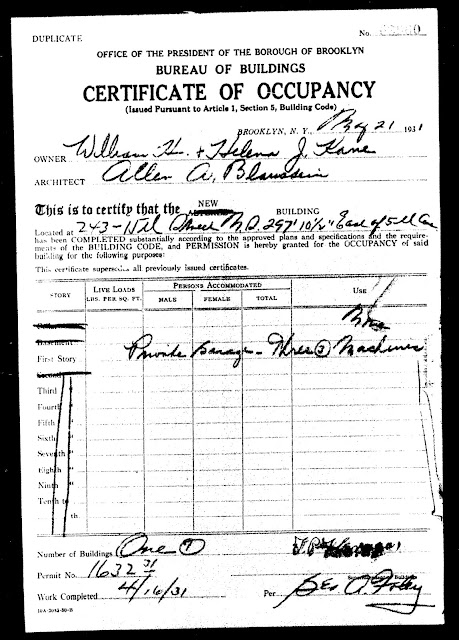 DUPLICATE No.
OFFICE OF THE PRESIDENT OF THE BOROUGH OF BROOKLYN
BUREAU OF BUILDINGS
CERTIFICATE OF OCCUPANCY
(Issued Pursuant to Article 1, Section 5, Building Code)
BROOKLYN, N. Y., May 21 1931
OWNER William H. + Helena J. Kane
ARCHITECT Allen A. Blaustein
This is to certify that the NEW BUILDING
Located at 243 - 11th Street N.S. 297' 10½" East of 5th
has been COMPLETED substantially according to the approved plans and specifications and the require-
ments of the BUILDING CODE, and PERMISSION is hereby granted for the OCCUPANCY of said
building for the following purposes:
This certificate supersedes all previously issued certificates.
STORY LIVE LOADS LBS. PER SQ. FT. PERSONS ACCOMMODATED MALE FEMALE TOTAL USE
Basement
First Story Private Garage - Three (3) Machines
Second
Third
Fourth "
Fifth "
Sixth "
Seventh "
Eighth "
Ninth "
Tenth to
th.
Number of Buildings One (1)
Permit No. 1632 31
Work Completed 4/16/31 Per Geo. A. Foley